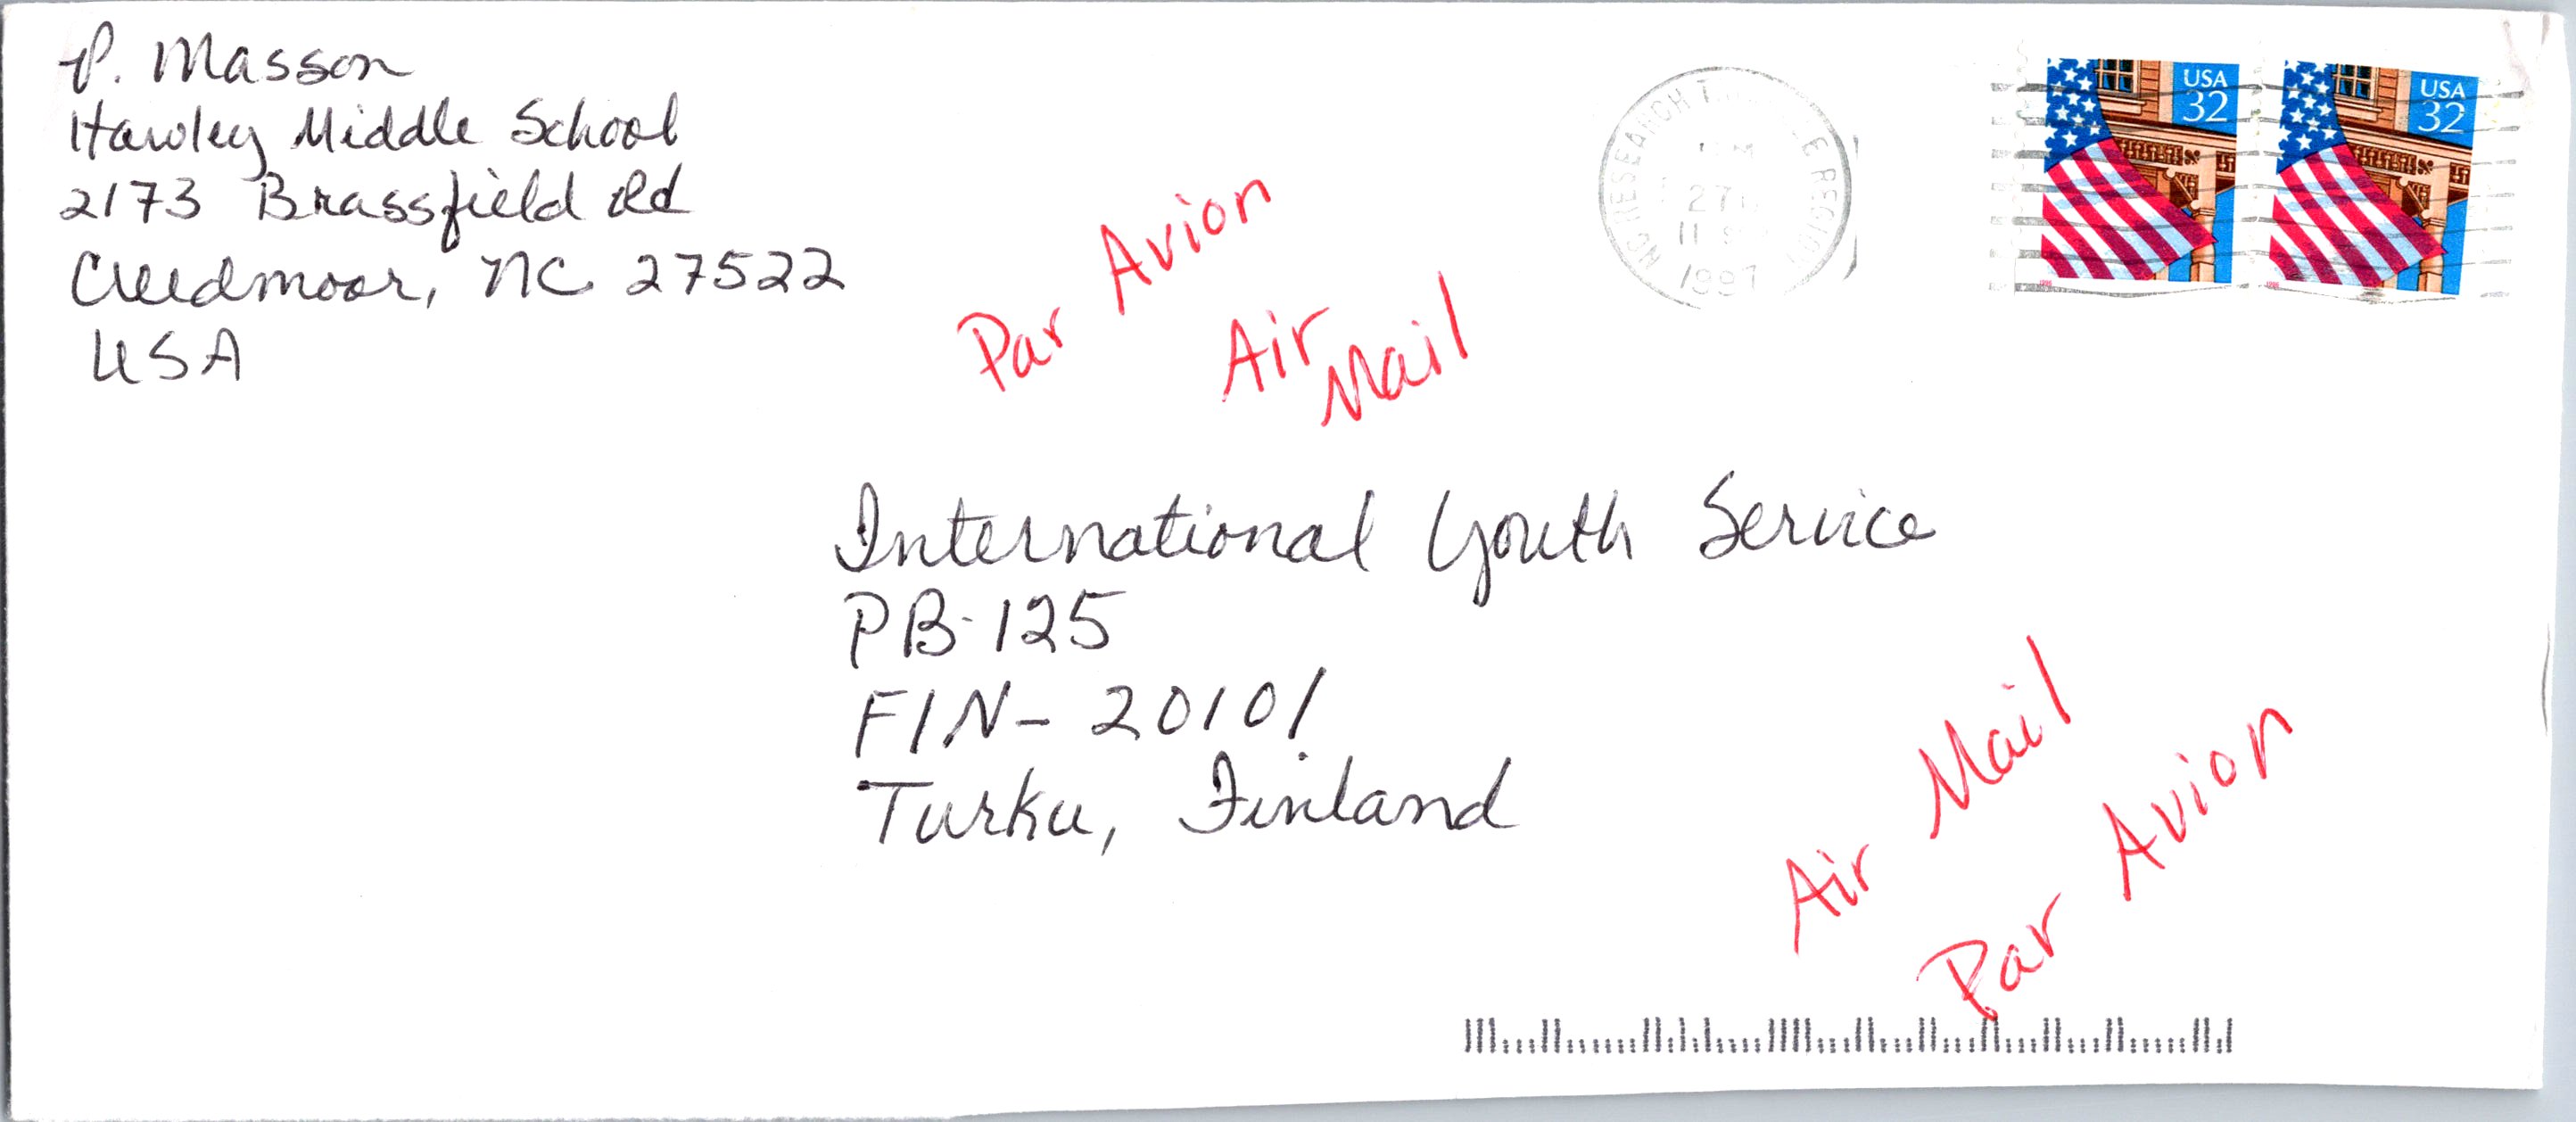 P. Masson
Hawley Middle School
2173 Brassfield Rd
Creedmoor, NC 27522
USA
Par Avion
Air Mail
NC RESEARCH
27
11
1997
USA
32
USA
32
International Youth Service
PB 125
FIN- 20101
Turku, Finland
Air Mail
Par Avion